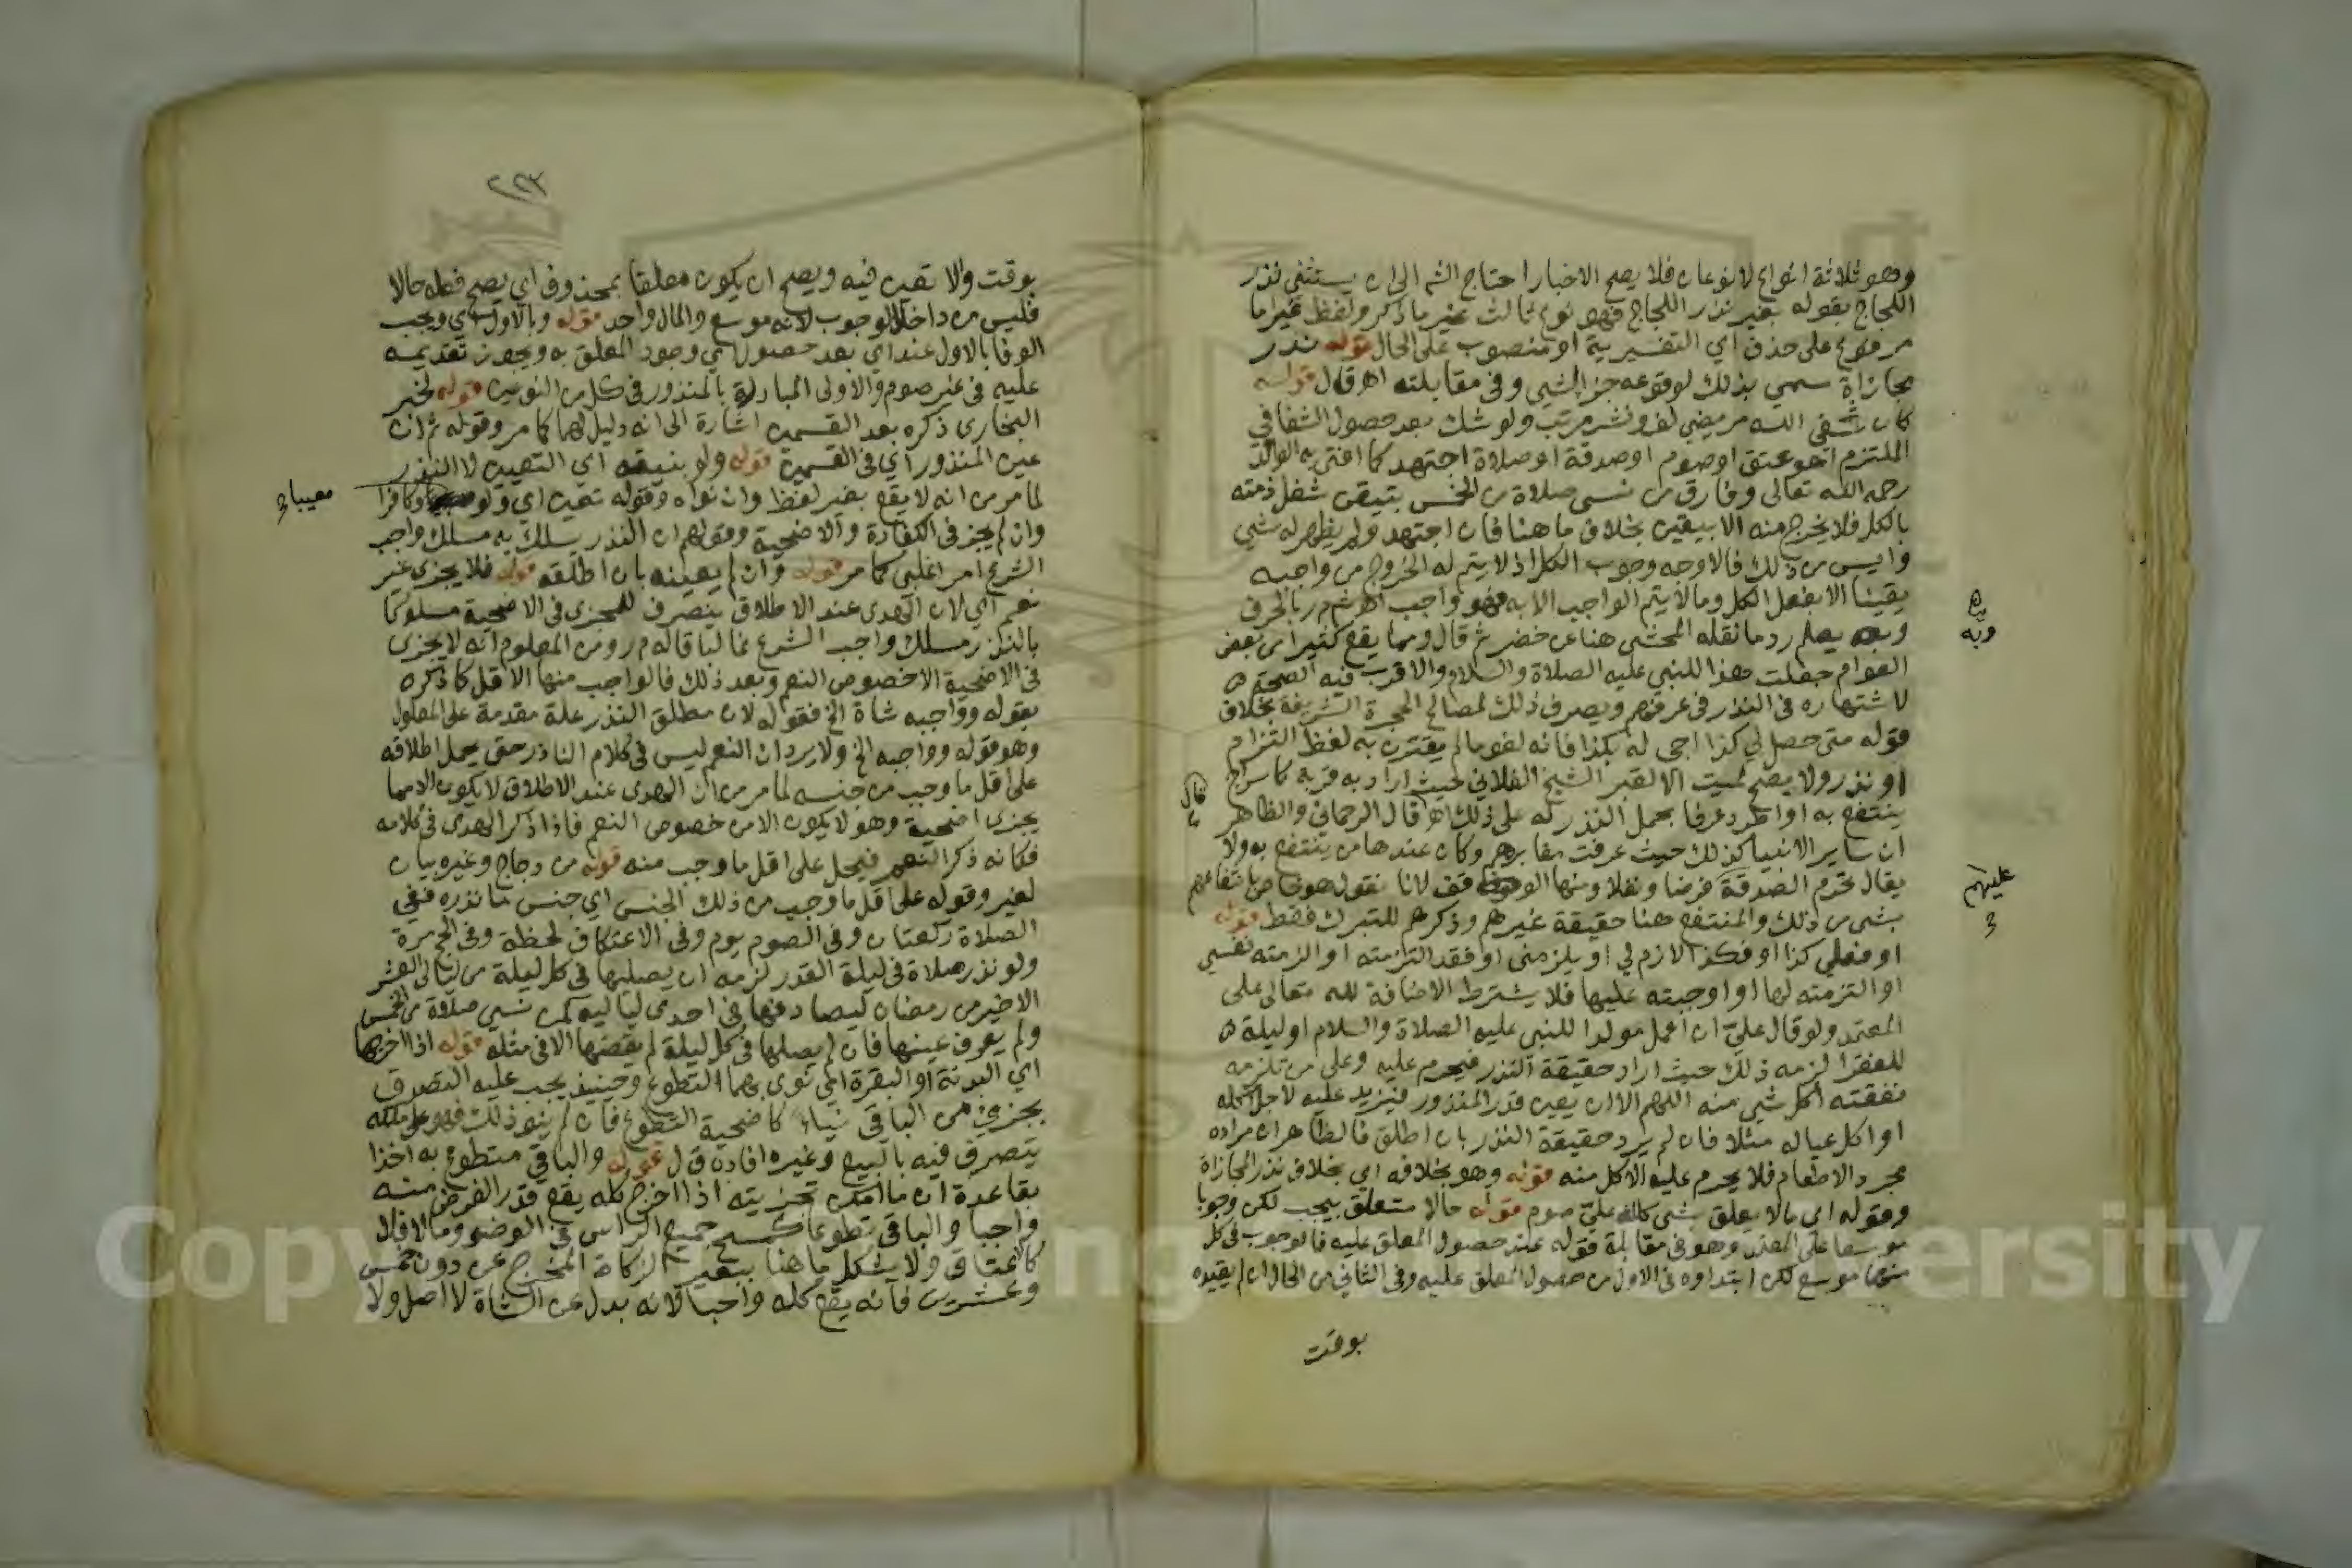 وهو ثلاثة انواع لا نوعان فلا يصح الاخبار احتاج الش الى ان يستثني نذر
اللجاج بقوله بغير نذر اللجاج فهو نوع ثالث غير ما ذكر ولفظ غير اما
مرفوع على حذف اي التفسيرية او منصوب على الحال قوله نذر
مجازاة سمي بذلك لوقوعه جزا لشي وفي مقابلته اهر قال قوله
كان شفى الله مريضي لف ونشر مرتب ولو شك بعد حصول الشفا في
الملتزم اهو عتق او صوم او صدقة او صلاة اجتهد كما افتى به الوالد
رحمه الله تعالى وفارق من نسي صلاة من الخمس بتيقن شغل ذمته
بالكل فلا يخرج منه الا بيقين بخلاف ما هنا فان اجتهد ولم يظهر له شي
وايس من ذلك فالاوجه وجوب الكل اذ لا يتم له الخروج من واجبه
يقينا الا بفعل الكل وما لا يتم الواجب الا به فهو واجب اهـ ش م ر بالحرف
وبه يعلم رد ما نقله المحشى هنا عن خضر ثم قال ومما يقع كثيرا من بعض
العوام جعلت هذا للنبي عليه الصلاة والسلام والاقرب فيه الصحة
لاشتهاره في النذر في عرفهم ويصرف ذلك لمصالح الحجرة الشريفة بخلاف
قوله متى حصل لي كذا اجي له بكذا فانه لغو ما لم يقترن به لفظ التزام
او نذر ولا يصح لميت الا لقبر الشيخ الفلاني حيث اراد به قربة كاسراج
ينتفع به او اطرد عرفا بحمل النذر له على ذلك اهـ قال الرحماني والظاهر
ان ساير الانبيا كذلك حيث عرفت مقابرهم وكان عندها من ينتفع به ولا
يقال تحرم الصدقة فرضا ونفلا ومنها الوقف لانا نقول هو خاص بانتفاعهم
بشي من ذلك والمنتفع هنا حقيقة غيرهم وذكرهم للتبرك فقط قوله
او فعلي كذا او فكذا لازم لي او يلزمني او فقد التزمته او الزمته نفسي
او التزمته لها او اوجبته عليها فلا يشترط الاضافة لله تعالى على
المعتمد ولو قال علي ان اعمل مولدا للنبي عليه الصلاة والسلام او ليلة
للفقرا لزمه ذلك حيث اراد حقيقة النذر فيحرم عليه وعلى من تلزمه
نفقته اكل شي منه اللهم الا ان يعين قدر المنذور فيزيد عليه لاجل اكله
او اكل عياله مثلا فان لم يرد حقيقة النذر بان اطلق فالظاهر ان مراده
مجرد الاطعام فلا يحرم عليه الاكل منه قوله وهو بخلافه اي بخلاف نذر المجازاة
وقوله اي بلا يعلق بشي كلله علي صوم قوله حالا متعلق بيجب لكن وجوبا
موسعا على المعتمد وهو في مقابلة قوله عند حصول المعلق عليه فالوجوب في كل
منهما موسع لكن ابتداوه في الاول من حصول المعلق عليه وفي الثاني من الحال ان لم يقيده
بوقت
وبه
قال
عليهم
٢٢٣
بوقت والا تعين فيه ويصح ان يكون معلقا بمحذوف اي يصح فعله حالا
فليس من داخلا لوجوب لانه موسع والمال واحد قوله وبالاول اي ويجب
الوفا بالاول عند اي بعد حصول اي وجود المعلق به ويجوز تقديمه
عليه في غير صوم والاولى المبادرة بالمنذور في كل من النوعين قوله لخبر
البخاري ذكره بعد القسمين اشارة الى انه دليل لهما كما مر وقوله ثم ان
عين المنذور اي في القسمين قوله ولو بنيته اي التعيين لا النذر
لما مر من انه لا يقع بغير لفظ وان نواه وقوله تعين اي ولو وكافرا
معيبا
وان لم يجز في الكفارة والاضحية وقولهم ان النذر يسلك به مسلك واجب
الشرع امر اغلبي كما مر قوله وان لم يعينه بان اطلقه قوله فلا يجزي غير
نعم اي لان الهدي عند الاطلاق ينصرف للمجزي في الاضحية مسلوكا
بالنذر مسلك واجب الشرع غالبا قاله م ر ومن المعلوم انه لا يجزي
في الاضحية الا خصوص النعم وبعد ذلك فالواجب منها الاقل كما ذكره
بقوله وواجبه شاة الخ فقوله لان مطلق النذر علة مقدمة على المعلول
وهو قوله وواجبه الخ ولا يرد ان النعم ليس في كلام الناذر حتى يحمل اطلاقه
على اقل ما وجب من جنسه لما مر من ان الهدي عند الاطلاق لا يكون الا مما
يجزي اضحية وهو لا يكون الا من خصوص النعم فاذا ذكر الهدي في كلامه
فكانه ذكر النعم فيحمل على اقل ما وجب منه قوله من دجاج وغيره بيان
لغير وقوله على اقل ما وجب من ذلك الجنس اي جنس ما نذره ففي
الصلاة ركعتان وفي الصوم يوم وفي الاعتكاف لحظة وفي الحج مرة
ولو نذر صلاة في ليلة القدر لزمه ان يصليها في كل ليلة من ليالي العشر
الاخير من رمضان ليصادفها في احدى لياليه كمن نسي صلاة من الخمس
ولم يعرف عينها فان لم يصلها في كل ليلة لم يقضها الا في مثله قوله اذا اخرجها
اي البدنة او البقرة اي نوى بهما التطوع وحينئذ يجب عليه التصدق
بجزء من الباقي نياء كاضحية التطوع فان لم ينو ذلك فهو على ملكه
يتصرف فيه بالبيع وغيره افاده ق ل قوله والباقي متطوع به اخذا
بقاعدة ان ما امكن تجزيته اذا اخرج كله يقع قدر الفرض منه
واجبا والباقي تطوعا كمسح جميع الراس في الوضو وما لا فلا
كاعتاق ولا يشكل ما هنا ببعير الزكاة المخرج عن دون خمس
وعشرين فانه يقع كله واجبا لانه بدل عن الشاة لا اصل ولا